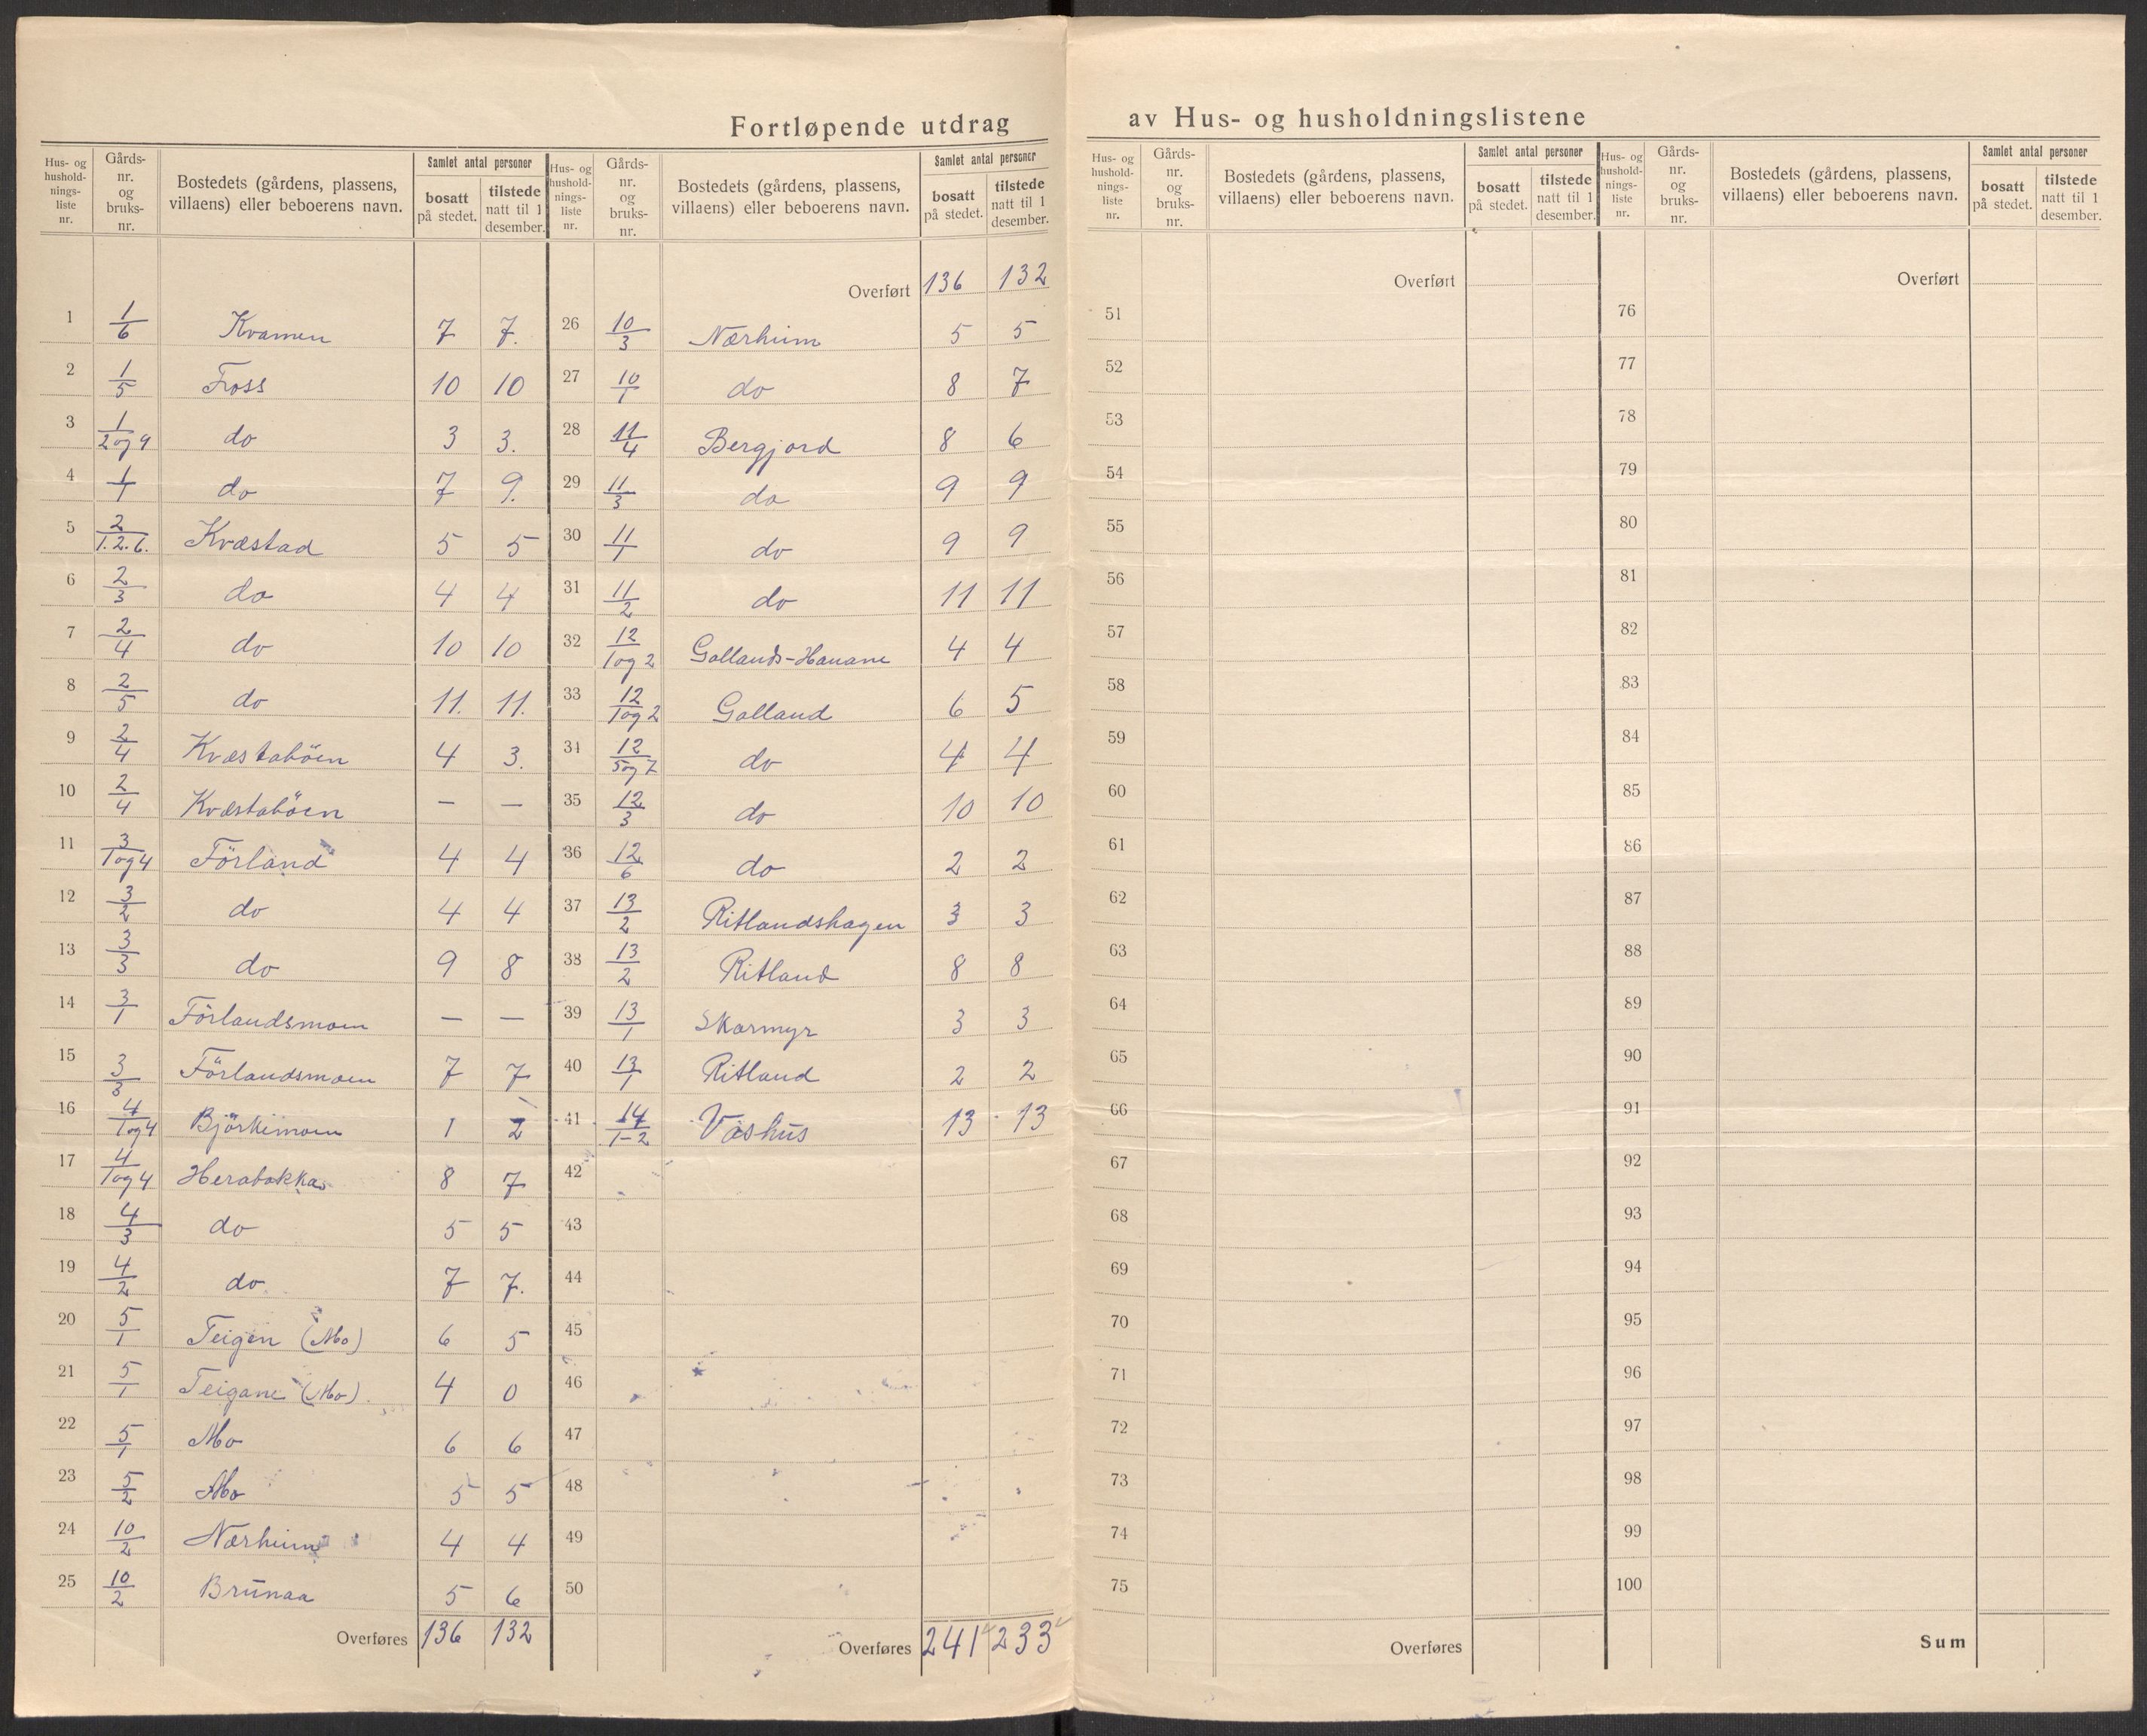 Fortløpende utdrag av Hus- og husholdningslistene
Hus- og hushold- nings- liste nr. | Gårds- nr. og bruks- nr. | Bostedets (gårdens, plassens, villaens) eller beboerens navn. | Samlet antal personer | bosatt på stedet. | tilstede natt til 1 desember.
1 1/6 Kvamen 7 7.
2 1/5 Fross 10 10
3 1/2 og 9 do 3 3.
4 1/1 do 7 9.
5 2/1.2.6. Kvæstad 5 5
6 2/3 do 4 4
7 2/4 do 10 10
8 2/5 do 11. 11.
9 2/4 Kvæstaböen 4 3.
10 2/4 Kvæstaböen — —
11 3/1 og 4 Förland 4 4
12 3/2 do 4 4
13 3/3 do 9 8
14 3/1 Förlandsmoen — —
15 3/3 Förlandsmoen 7 7
16 4/1 og 4 Björkimoen 1 2
17 4/1 og 4 Herabakka 8 7
18 4/3 do 5 5
19 4/2 do 7 7.
20 5/1 Teigen (Mo) 6 5
21 5/1 Teigane (Mo). 4 0
22 5/1 Mo 6 6
23 5/2 Mo 5 5
24 10/2 Nærheim 4 4
25 10/2 Brunaa 5 6
Overføres 136 132
Hus- og hushold- nings- liste nr. | Gårds- nr. og bruks- nr. | Bostedets (gårdens, plassens, villaens) eller beboerens navn. | Samlet antal personer | bosatt på stedet. | tilstede natt til 1 desember.
Overført 136 132
26 10/3 Nærheim 5 5
27 10/1 do 8 7
28 11/4 Bergjord 8 6
29 11/3 do 9 9
30 11/1 do 9 9
31 11/2 do 11 11
32 12/1 og 2 Gallands-Hauane 4 4
33 12/1 og 2 Galland 6 5
34 12/5 og 7 do 4 4
35 12/3 do 10 10
36 12/6 do 2 2
37 13/2 Ritlandshagen 3 3
38 13/2 Ritland 8 8
39 13/1 Skarmyr 3 3
40 13/1 Ritland 2 2
41 14/1-2 Vashus 13 13
42
43
44
45
46
47
48
49
50
Overføres 241 233
Hus- og hushold- nings- liste nr. | Gårds- nr. og bruks- nr. | Bostedets (gårdens, plassens, villaens) eller beboerens navn. | Samlet antal personer | bosatt på stedet. | tilstede natt til 1 desember.
Overført
51
52
53
54
55
56
57
58
59
60
61
62
63
64
65
66
67
68
69
70
71
72
73
74
75
Overføres
Hus- og hushold- nings- liste nr. | Gårds- nr. og bruks- nr. | Bostedets (gårdens, plassens, villaens) eller beboerens navn. | Samlet antal personer | bosatt på stedet. | tilstede natt til 1 desember.
Overført
76
77
78
79
80
81
82
83
84
85
86
87
88
89
90
91
92
93
94
95
96
97
98
99
100
Sum